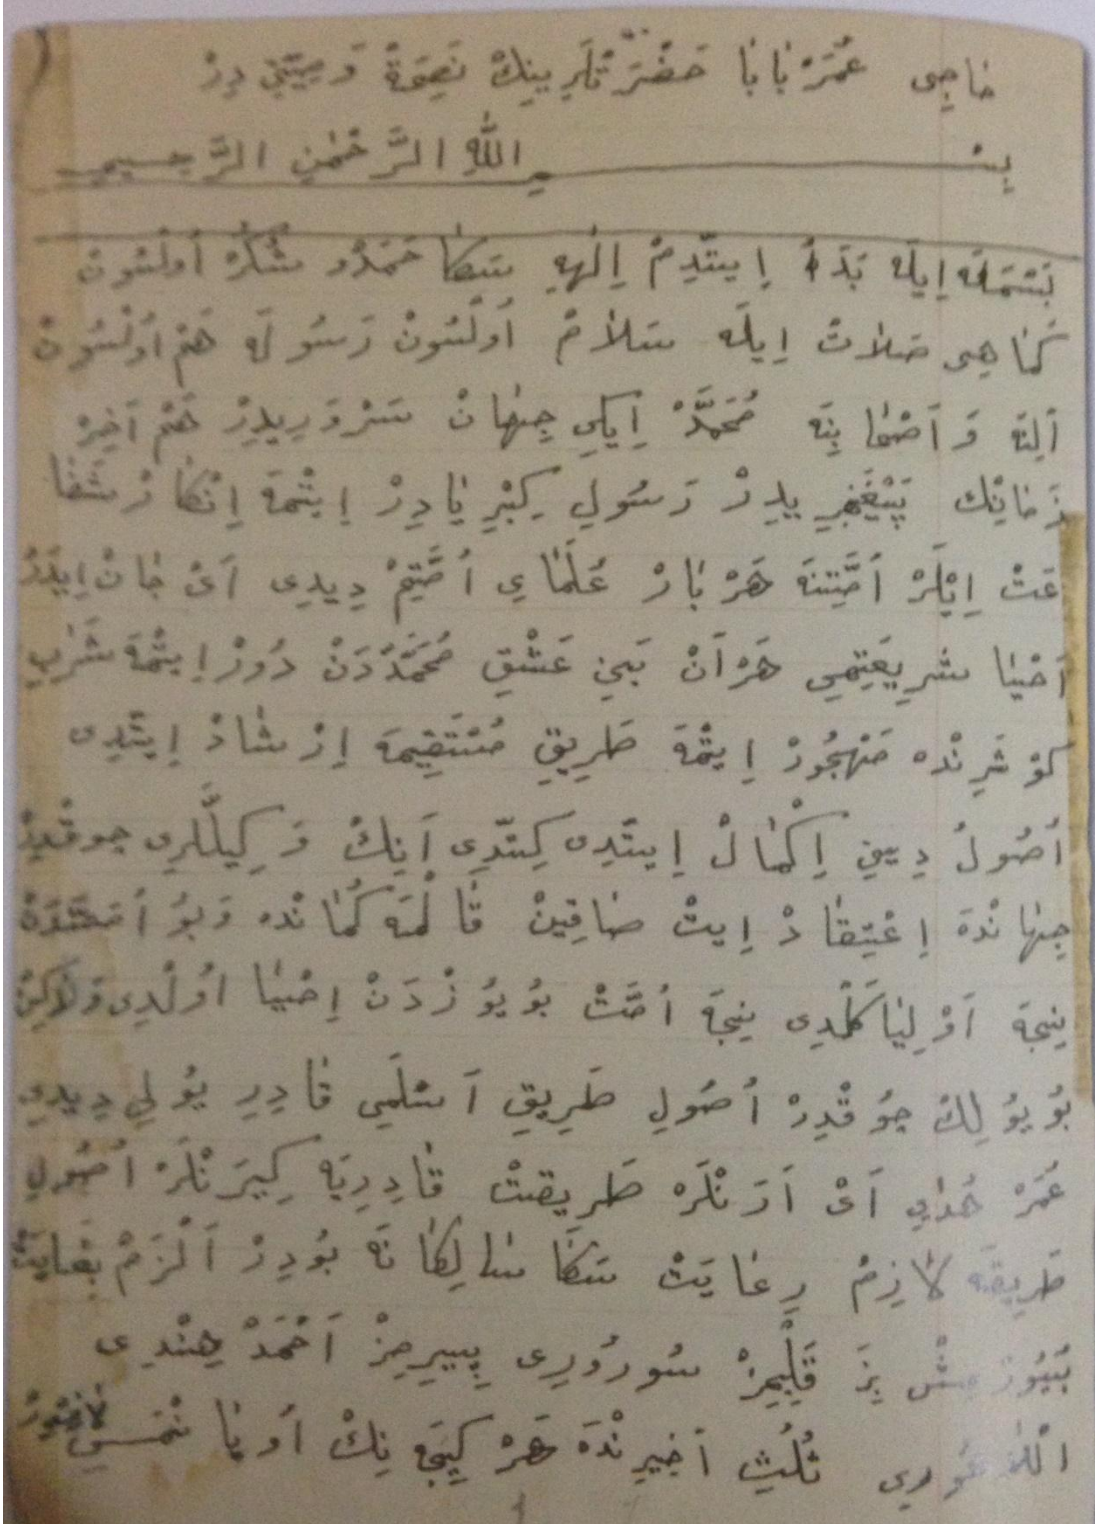 حاجى عُمَرْ بَابَا حَضْرَتْلَرِينِكْ نَصِيحَةْ وَصِيَّتِى دِرْ
بِسْمِ اللّٰهِ الرَّحْمٰنِ الرَّحِيمِ
بَسْمَلَه اِيلَه بَدَأْ اِيتَّدِمْ اِلٰهِ سَكَا حَمْدُ شُكْرْ اُولْسُونْ
كَمَا هِى صَلَاتْ اِيلَه سَلَامْ اُولْسُونْ رَسُولَه هَمْ اُولْسُونْ
اَلِنَه وَ اَصْحَابِنَه مُحَمَّدْ اِيكِي جِهَانْ سَرْوَرِيدِرْ هَمْ اَخِرْ
زَمَانِكْ پَيْغَمْبَرِيدِرْ رَسُولِ كِبْرِيَادِرْ اِيتْمَه اِنْكَارْ شَفَا
عَتْ اِيْلَرْ اُمَّتِنَه هَرْ بَارْ عُلَمَاىِ اُمَّتِمْ دِيدِى اَىْ جَانْ اِيدَرْ
اَحْيَا شَرِيعَتِمِى هَرْ اَنْ بَنِى عَشْقِ مُحَمَّدْدَنْ دُورْ اِيتْمَه شَرَابِ
كَوْثَرِنْدَه مَهْجُورْ اِيتْمَه طَرِيقِ مُسْتَقِيمَه اِرْشَادْ اِيتَّدِى
اُصُولُ دِينِى اِكْمَالْ اِيتَّدِى كِتَّدِى اَنِكْ وَكِيلَّرِى چوقْدِرْ
جِهَانْدَه اِعْتِقَادْ اِيتْ صَاقِينْ قَالْمَه كُمَانْدَه وَبُو اُمَّتْدَنْ
نِيجَه اَوْلِيَا كَلْدِى نِيجَه اُمَّتْ بُو يُوزْدَنْ اِحْيَا اُولْدِى وَلٰكِنْ
بُو يُولِكْ چُوقْدِرْ اُصُولِ طَرِيقِ اَسْلَمِى قَادِرِ يُولِى دِيدِى
عُمَرْ هُدَايِى اَىْ اَرَنْلَرْ طَرِيقَتْ قَادِرِيَه كِيرَنْلَرْ اُصُولِ
طَرِيقَه لَازِمْ رِعَايَتْ سَكَا سَالِكَانَه بُودِرْ اَلْزَمْ بِغَايَتْ
بُيُورْمِشْ بِزَ قَلْبِيمِزْ سُورُورِى پِيرِمِزْ اَحْمَدْ هِنْدِى
اللّٰهْ نُورِى ثُلُثِ اَخِيرِنْدَه هَرْ كِيجَه نِكْ اُويَانْمَسِى لَازِمْدِرْ